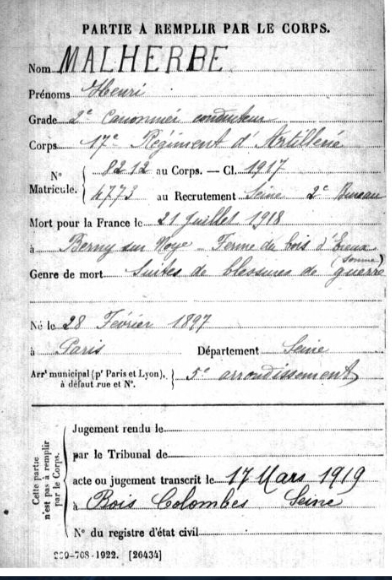 PARTIE À REMPLIR PAR LE CORPS.
Nom MALHERBE
Prénoms Henri
Grade 2e Canonnier conducteur
Corps 17e Régiment d'Artillerie
N° 8212 au Corps. — Cl. 1917
Matricule. 4773 au Recrutement Seine 2e Bureau
Mort pour la France le 21 juillet 1918
à Berny sur Noye - Ferme du bois d' (Somme)
Genre de mort Suites de blessures de guerre
Né le 28 Février 1897
à Paris Département Seine
Arrt municipal (pr Paris et Lyon), à défaut rue et N°. 5e arrondissement
Cette partie n'est pas à remplir par le Corps.
Jugement rendu le
par le Tribunal de
acte ou jugement transcrit le 17 Mars 1919
à Bois Colombes Seine
N° du registre d'état civil
-708-1922. [26434]